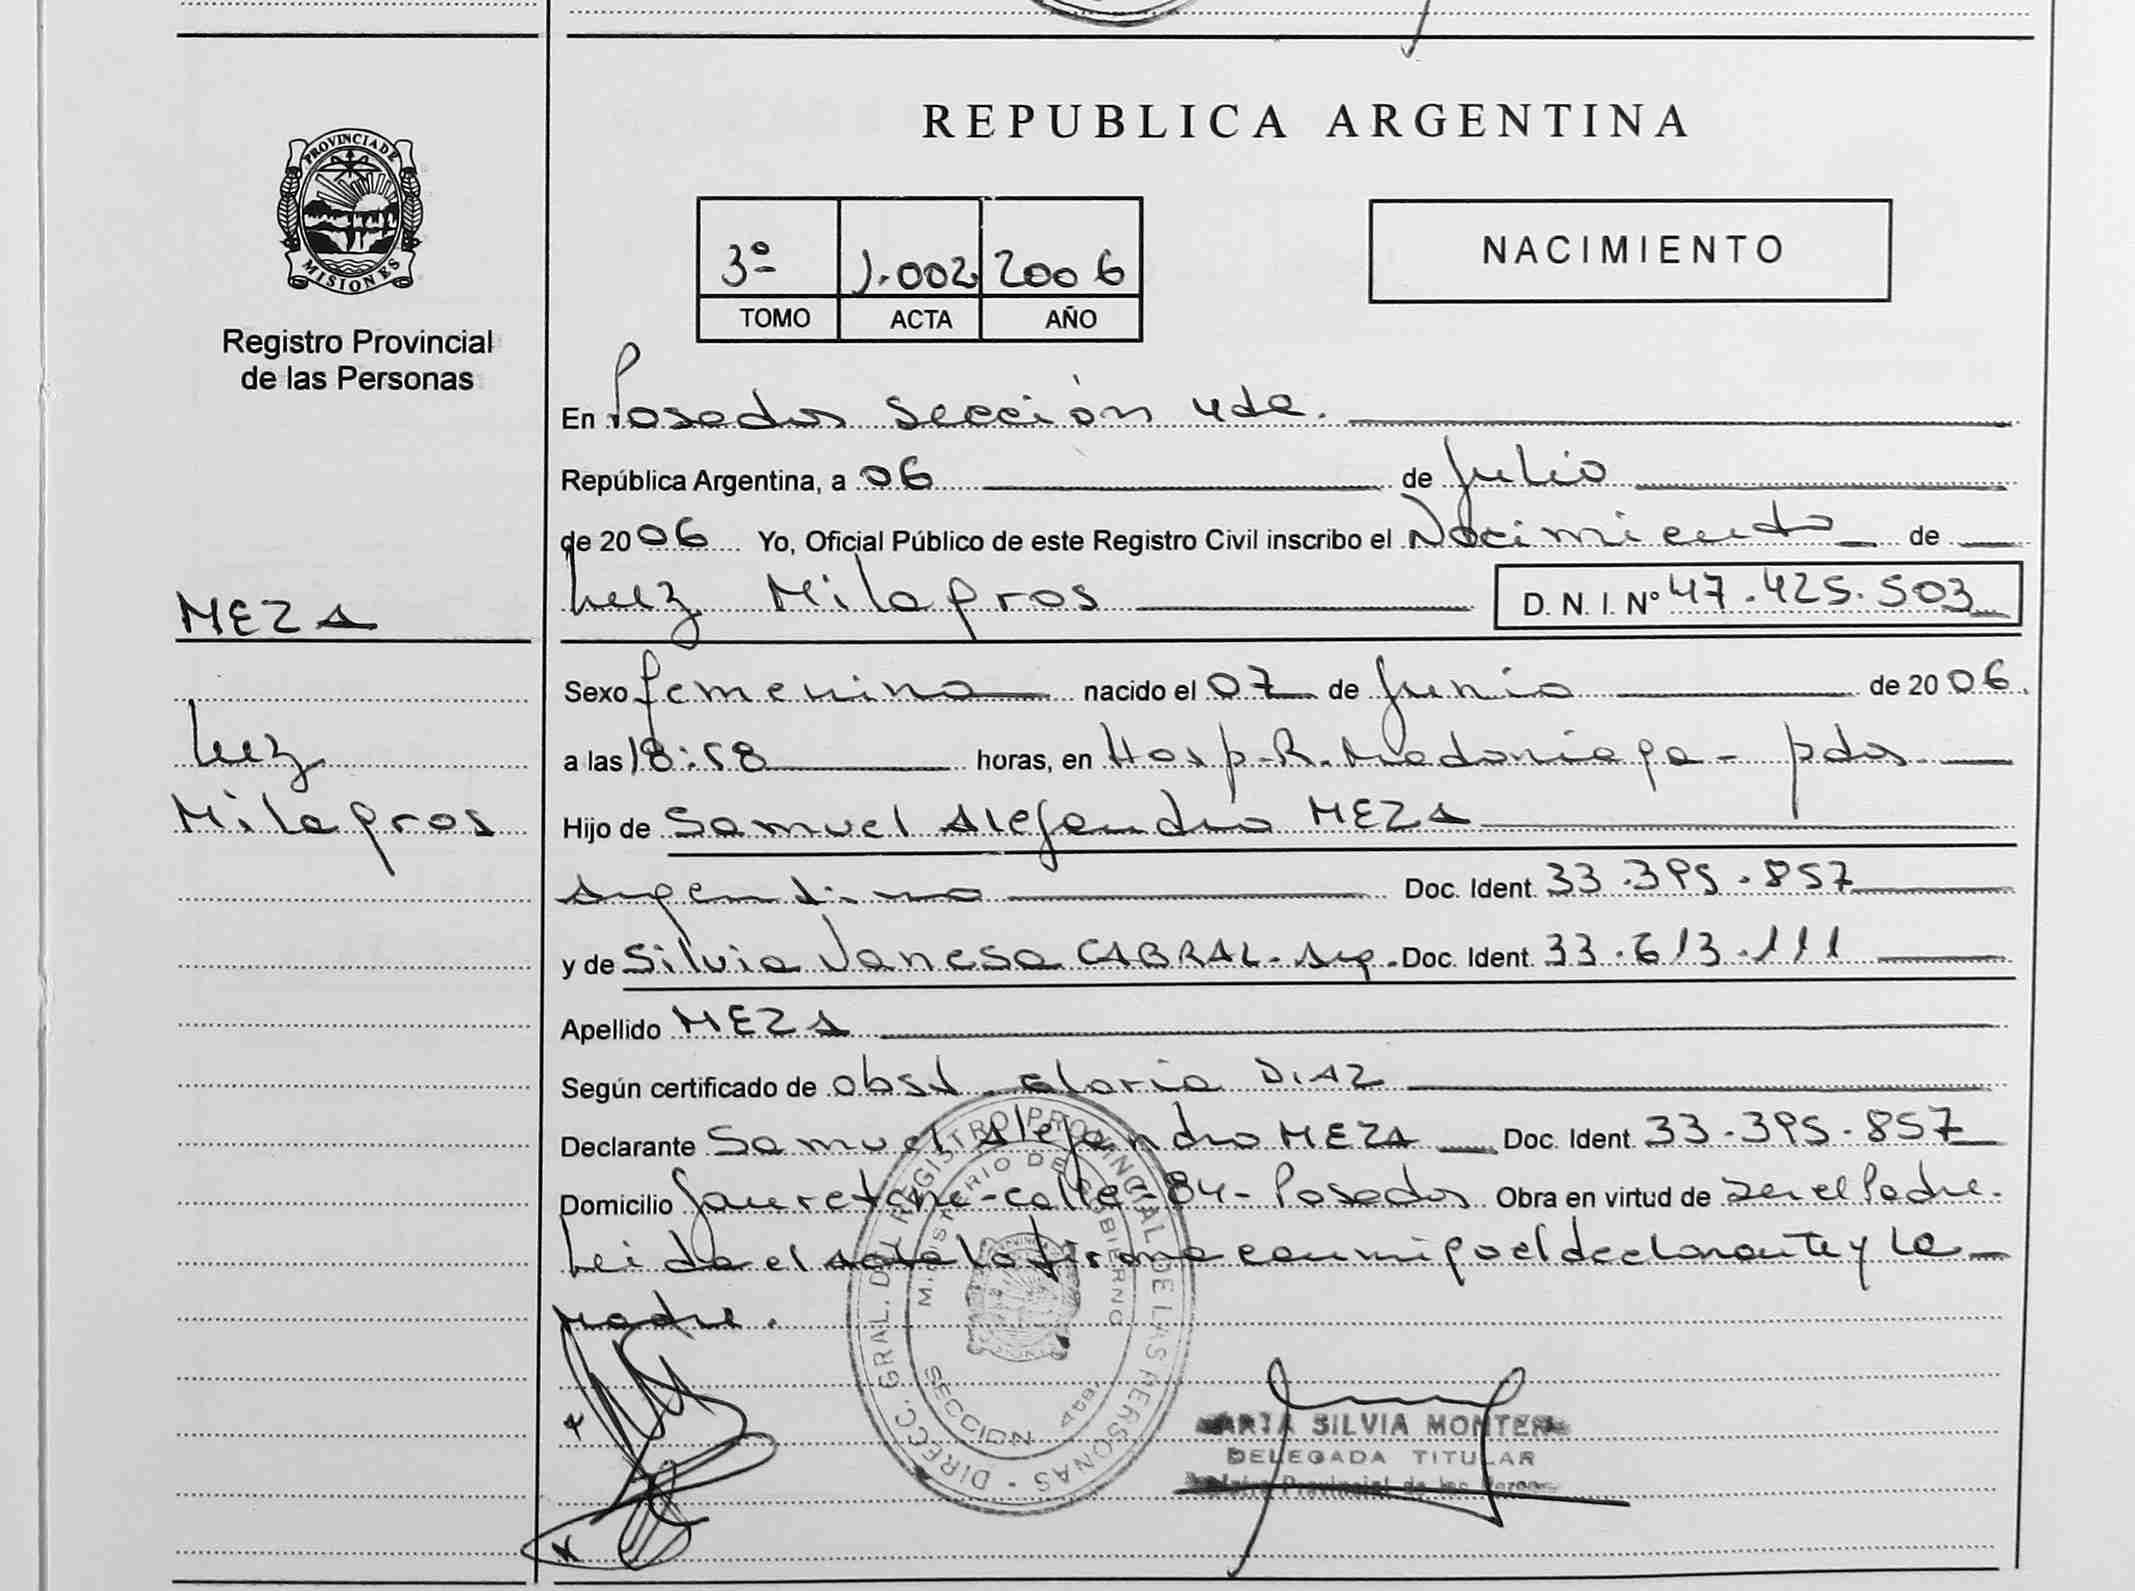 PROVINCIA DE
MISIONES
Registro Provincial
de las Personas
REPUBLICA ARGENTINA
3º 1.002 2006
TOMO ACTA AÑO
NACIMIENTO
En Posadas Sección 4ta.
República Argentina, a 06 de Julio
de 2006 Yo, Oficial Público de este Registro Civil inscribo el Nacimiento de
MEZA
Luz Milagros D. N. I. Nº 47.425.503
Sexo femenino nacido el 07 de Junio de 2006.
Luz
a las 18:58 horas, en Hosp. R. Madariaga - pdas
Milagros
Hijo de Samuel Alejandro MEZA
Argentino Doc. Ident. 33.395.857
y de Silvia Vanesa CABRAL - Arg. Doc. Ident. 33.613.111
Apellido MEZA
Según certificado de obst. Gloria DIAZ
Declarante Samuel Alejandro MEZA Doc. Ident. 33.395.857
Domicilio Jauretche - calle - 84 - Posadas Obra en virtud de ser el Padre.
Leida el acta la firma conmigo el declarante y la
Madre.
DIREC. GRAL. DEL REGISTRO PROVINCIAL DE LAS PERSONAS
MINISTERIO DE GOBIERNO
SECCION 4ta.
SILVIA
DELEGADA TITULAR
Provincial de las